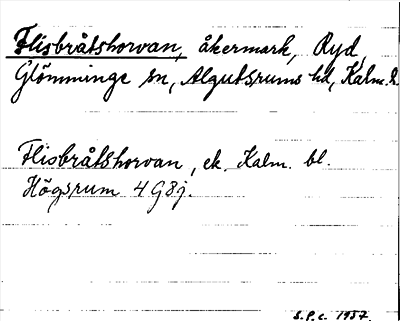 Flisbråtshorvan, åkermark, Ryd,
Glömminge sn, Algutsrums hd, Kalm. l.
Flisbråtshorvan, ek. Kalm. bl.
Högsrum 4 G8j.
S.P.c. 1957.